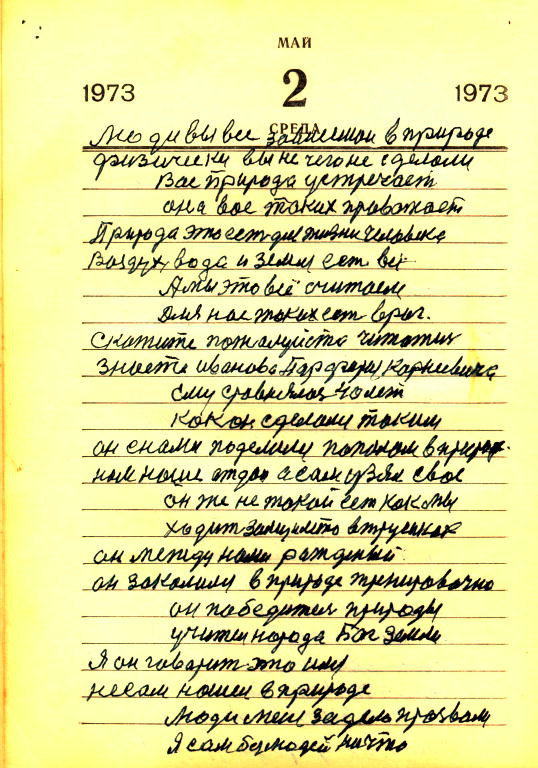 МАЙ
1973 2 1973
СРЕДА
Люди вы все зависими в природе
физически вы не чего не сделоли
Вас природа устречает
она вас таких проважает
Природа это ест для жизни человека
Воздух, вода и земля ест всё
А мы это всё считаем
Для нас таких ест враг.
Скажите пожалуйста читатия
знаете Иванова Парфирия Карнеевича
ему сравнялос 40 лет
как он сделали таким
он снами поделили пополом в природ-
ном наше отдал а сам узял свое
он же не такой ест как мы
ходит зашимто в трусиках
он между нами рожденый
он закалили в природе тренировачно
он победител природы
учител народа Бог земли
Я он говарит это
не сам нашел в природе
Люди меня за дело празвали
Я сам без людей ничто